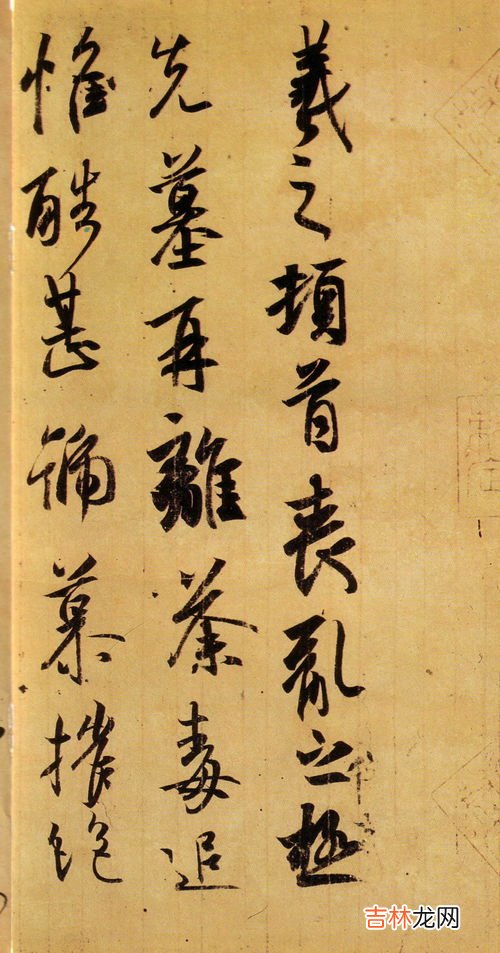 羲之頓首喪亂之極
先墓再離荼毒追
惟酷甚號慕摧絕
吉林龙网